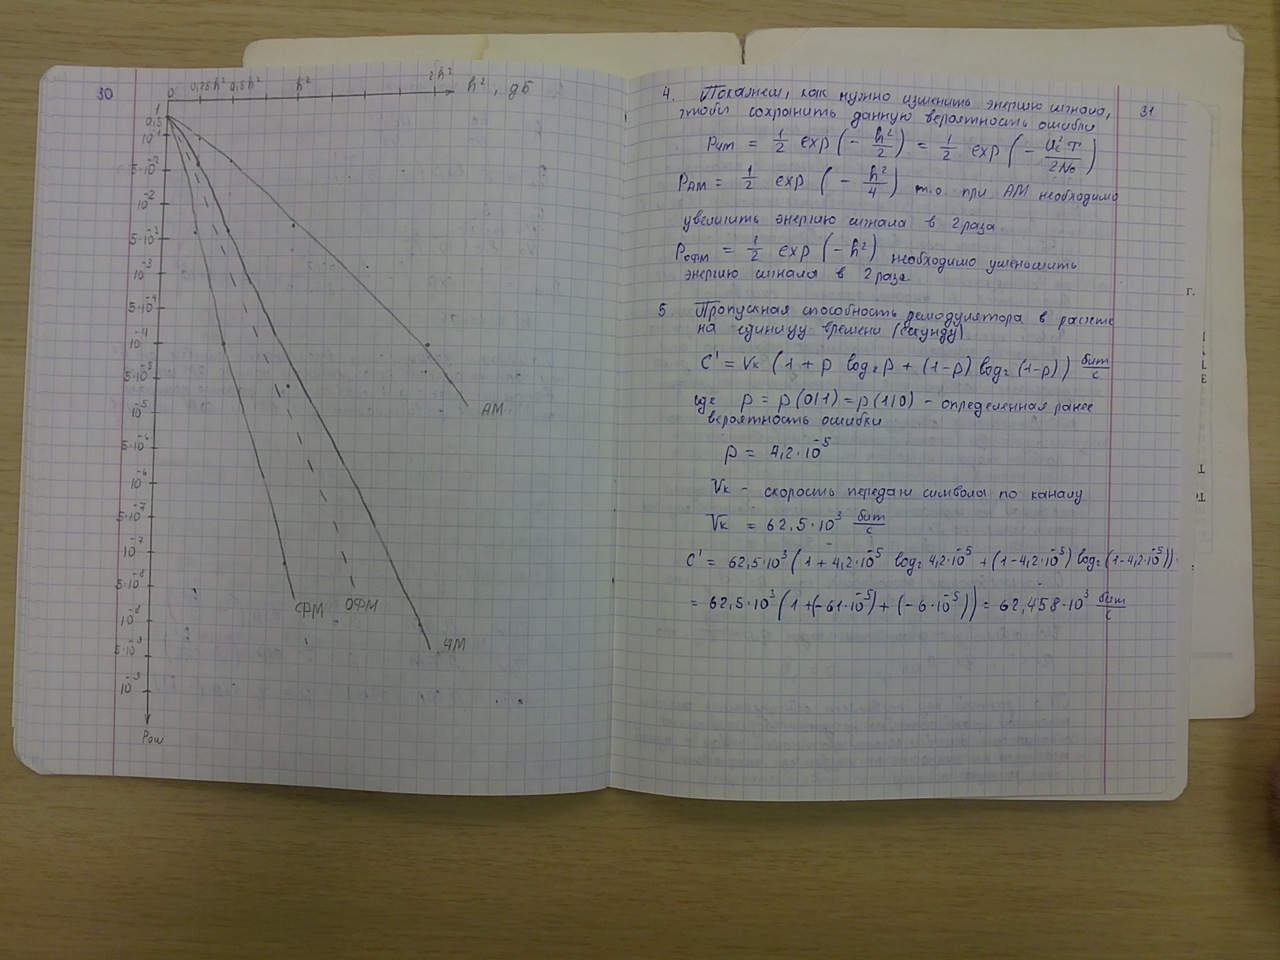 30
0 0,75h² 0,5h² h² 2h² h², дБ
1
0,5
10⁻¹
5·10⁻²
10⁻²
5·10⁻³
10⁻³
5·10⁻⁴
10⁻⁴
5·10⁻⁵
10⁻⁵
5·10⁻⁶
10⁻⁶
5·10⁻⁷
10⁻⁷
5·10⁻⁸
10⁻⁸
5·10⁻⁹
10⁻⁹
Pош
АМ
ФМ
ОФМ
ЧМ
31
4. Покажем, как нужно изменить энергию сигнала,
чтобы сохранить данную вероятность ошибки
Pчм = 1/2 exp(- h²/2) = 1/2 exp(- Uc²T/2N₀)
PАМ = 1/2 exp(- h²/4) т.о. при АМ необходимо
увеличить энергию сигнала в 2 раза
Pофм = 1/2 exp(-h²) необходимо уменьшить
энергию сигнала в 2 раза.
5. Пропускная способность демодулятора в расчете
на единицу времени (секунду)
C' = Vк (1 + p log₂ p + (1-p) log₂ (1-p)) бит/с
где p = p(0/1) = p(1/0) - определенная ранее
вероятность ошибки
p = 4,2·10⁻⁵
Vк - скорость передачи символа по каналу
Vк = 62,5·10³ бит/с
C' = 62,5·10³ (1 + 4,2·10⁻⁵ log₂ 4,2·10⁻⁵ + (1-4,2·10⁻⁵) log₂ (1-4,2·10⁻⁵)) =
= 62,5·10³ (1+(-61·10⁻⁵) + (-6·10⁻⁵)) = 62,458·10³ бит/с
г.